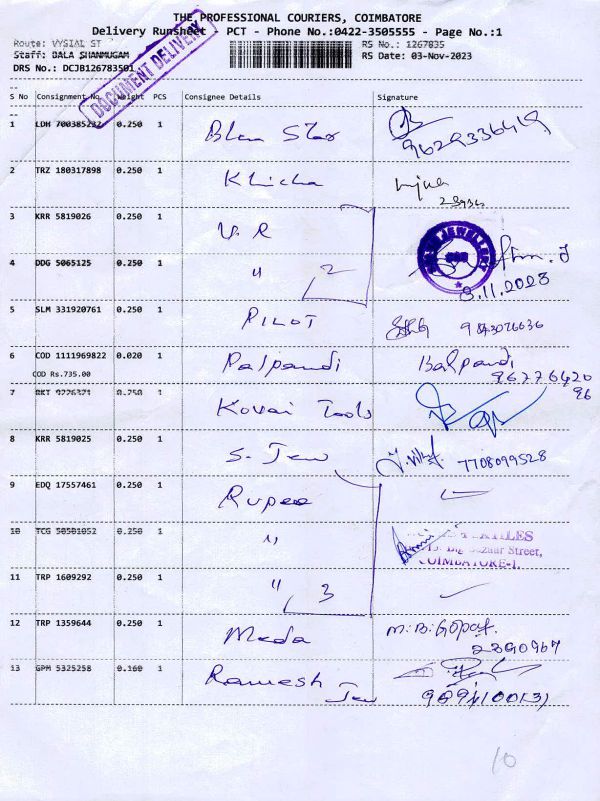 THE PROFESSIONAL COURIERS, COIMBATORE
Delivery Runsheet - PCT - Phone No.:0422-3505555 - Page No.:1
Route: VYSIAL ST
RS No.: 1267835
Staff: BALA SHANMUGAM
RS Date: 03-Nov-2023
DRS No.: DCJB126783501
DOCUMENT DELIVERY
S No Consignment No. Weight PCS Consignee Details Signature
1 LDH 0.250 1 Star
9629336419
2 TRZ 180317898 0.250 1 Khicha
3 KRR 5819026 0.250 1 V. R
JEWELLERY
4 DDG 5065125 0.250 1 " 2
3.11.2023
5 SLM 331920761 0.250 1 PILOT 9843026636
6 COD 1111969822 0.020 1 Palpandi Balpandi
COD Rs.735.00
96776420
96
7 0.250 1 Kovai Tools
8 KRR 5819025 0.250 1 S. Jew 7708099528
9 EDQ 17557461 0.250 1 Rupee
10 TCG 50501052 0.250 1 "
Bazaar Street,
COIMBATORE-1.
11 TRP 1609292 0.250 1 " 3
12 TRP 1359644 0.250 1 Meda M. B. Gopal
2390967
13 GPM 5325258 0.160 1 Ramesh Jew
10